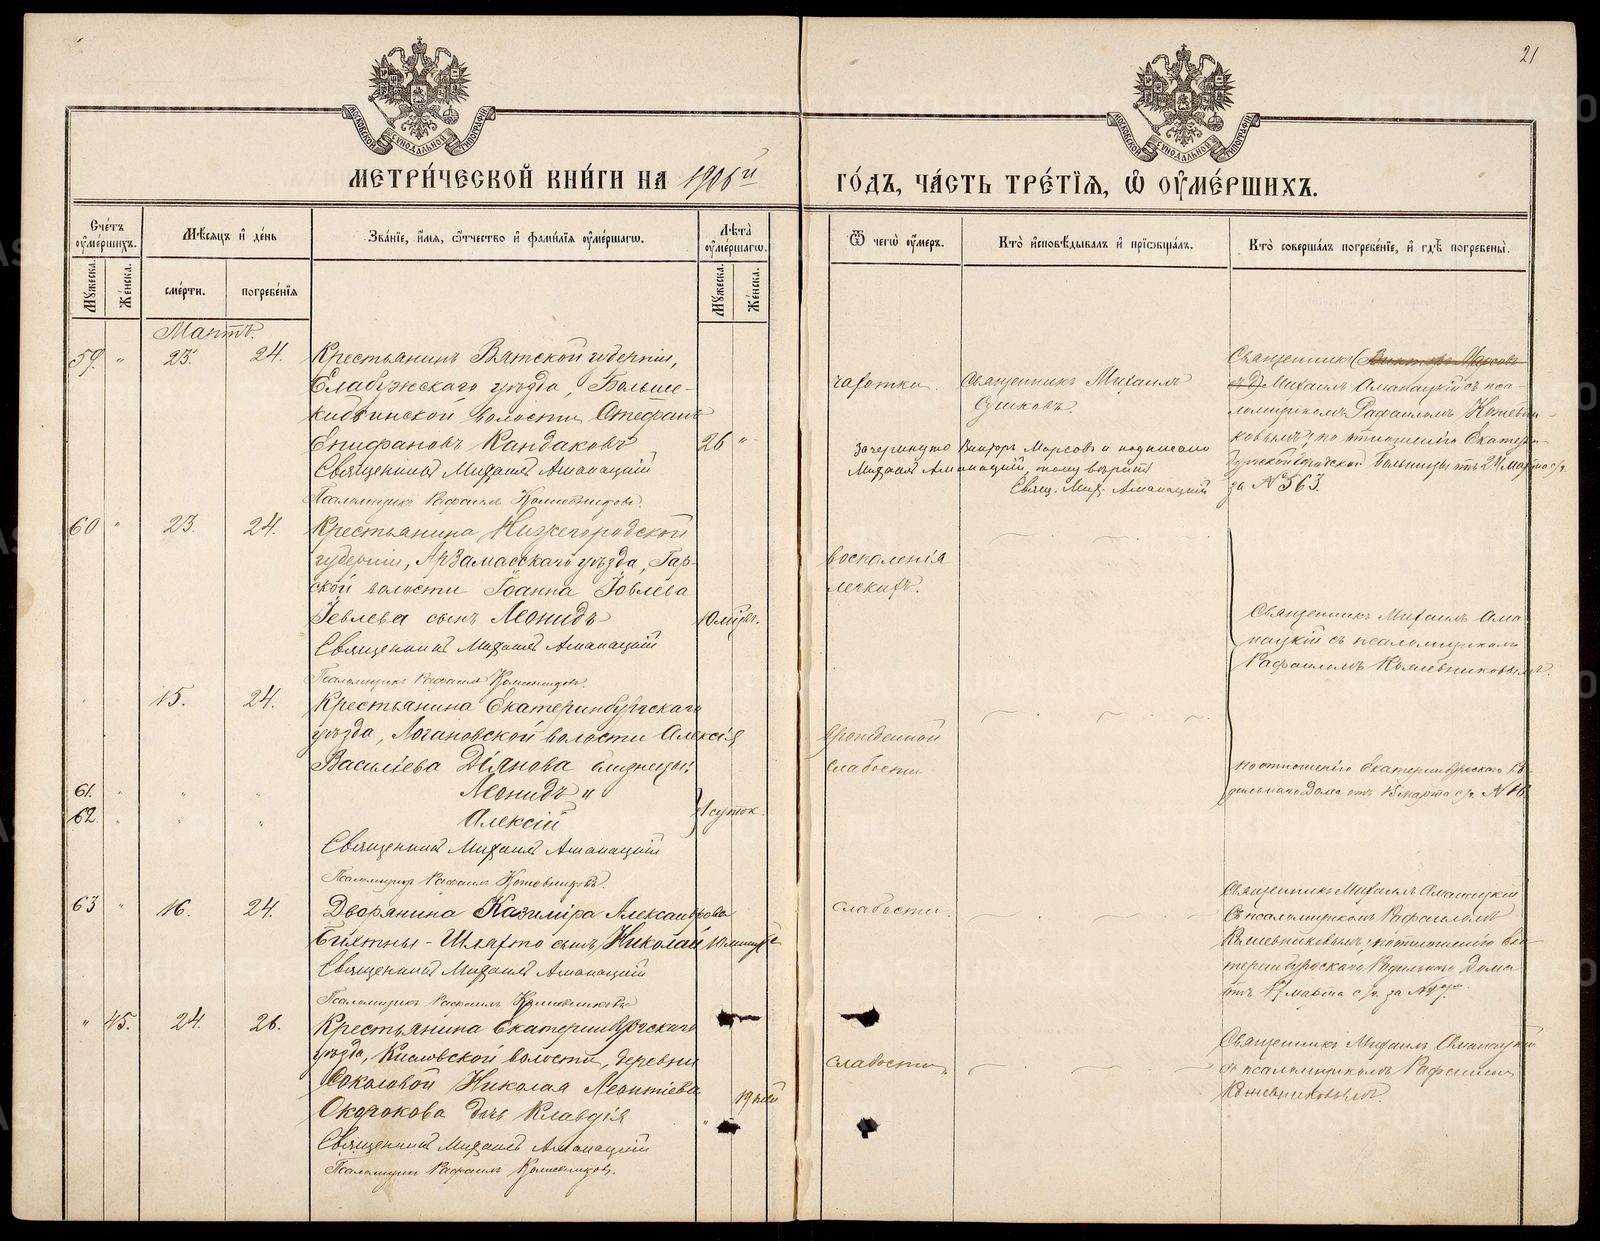 21
МОСКОВСКОЙ СУНОДАЛЬНОЙ ТИПОГРАФІИ
МОСКОВСКОЙ СУНОДАЛЬНОЙ ТИПОГРАФІИ
МЕТРИ́ЧЕСКОЙ КНИ́ГИ НА 1906й
ГО́ДЪ, ЧА́СТЬ ТРЕ́ТІѦ, Ѡ҆ ОУ҆МЕ́РШИХЪ.
Сче́тъ оу҆ме́ршихъ.
Мꙋжеска.
Же́нска.
Мѣ́сѧцъ и҆ де́нь
сме́рти.
погребе́нїѧ
Зва́нїе, и҆́мѧ, ѻ҆́тчество и҆ фами́лїѧ оу҆ме́ршагѡ.
Лѣ̀та оу҆ме́ршагѡ.
Мꙋжеска.
Же́нска.
Ѿ чегѡ̀ оу҆́меръ.
Кто̀ и҆сповѣ́дывалъ и҆ прїѡбща́лъ.
Кто̀ соверша́лъ погребе́нїе, и҆ гдѣ̀ погребены̀.
Мартъ.
59. " 23. 24. Крестьянинъ Вятской губерніи,
Елабужскаго уѣзда, Больше-
кибьинской волости Стефанъ
Епифановъ Кандаковъ 26 "
Священникъ Михаилъ Аманацкій
Псаломщикъ Рафаилъ Кожевниковъ.
чахотки. Священникъ Михаилъ
Сушковъ.
Зачеркнуто Викторъ Марсовъ и надписано
Михаилъ Аманацкій, тому вѣрить
Свящ. Мих. Аманацкій
Священникъ
Михаилъ Аманацкій съ пса-
ломщикомъ Рафаиломъ Кожевни-
ковымъ, по отношенію Екатерин-
бургской городской больницы отъ 24 Марта с/г.
за № 563.
60 " 23. 24. Крестьянина Нижегородской
губерніи, Арзамасскаго уѣзда, Гар-
ской волости Іоанна Іовлева
Іевлева сынъ Леонидъ 10 мѣсяц.
Священникъ Михаилъ Аманацкій
Псаломщикъ Рафаилъ Кожевниковъ.
воспаленія
легкихъ.
Священникъ Михаилъ Ама-
нацкій съ псаломщикомъ
Рафаиломъ Кожевниковымъ.
15. 24. Крестьянина Екатеринбургскаго
уѣзда, Логиновской волости Алексія
Василіева Діянова близнецы:
61. " " " Леонидъ и
62. " " " Алексій 1 суток.
Священникъ Михаилъ Аманацкій
Псаломщикъ Рафаилъ Кожевниковъ.
врожденной
слабости
по отношенію Екатеринбургскаго Ро-
дильнаго Дома отъ 15 марта с/г.
63 " 16. 24. Дворянина Казиміра Александрова
сынъ Николай 10 минутъ
Священникъ Михаилъ Аманацкій
Псаломщикъ Рафаилъ Кожевниковъ
слабости.
Священникъ Михаилъ Аманацкій
съ псаломщикомъ Рафаиломъ
Кожевниковымъ, по отношенію Ека-
теринбургскаго Родильнаго Дома
отъ 17 марта с/г. за №
" 15. 24. 26. Крестьянина Екатеринбургскаго
уѣзда, Кисловской волости, деревни
Соколовой Николая Леонтіева
Окорокова дочь Клавдія " 19 дней
Священникъ Михаилъ Аманацкій
Псаломщикъ Рафаилъ Кожевниковъ.
слабости
Священникъ Михаилъ Аманацкій
съ псаломщикомъ Рафаиломъ
Кожевниковымъ.
METRIKI.GASO-URAL.RU